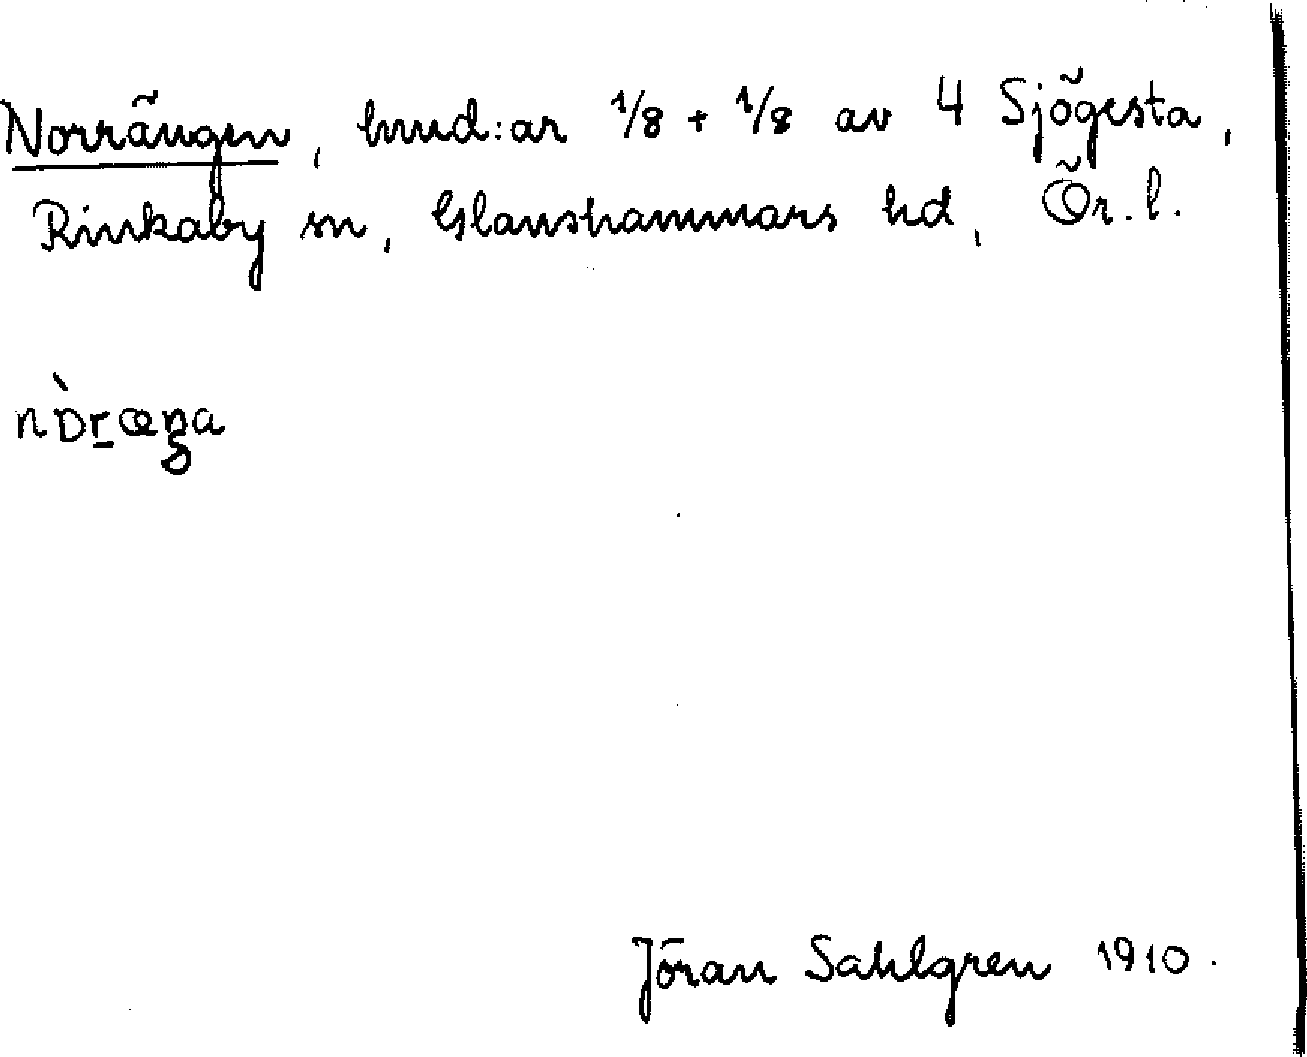 Norrängen, hmd:ar 1/8 + 1/8 av 4 Sjögesta,
Rinkaby sn, Glanshammars hd, Ör. l.
nòræŋa
Jöran Sahlgren 1910.